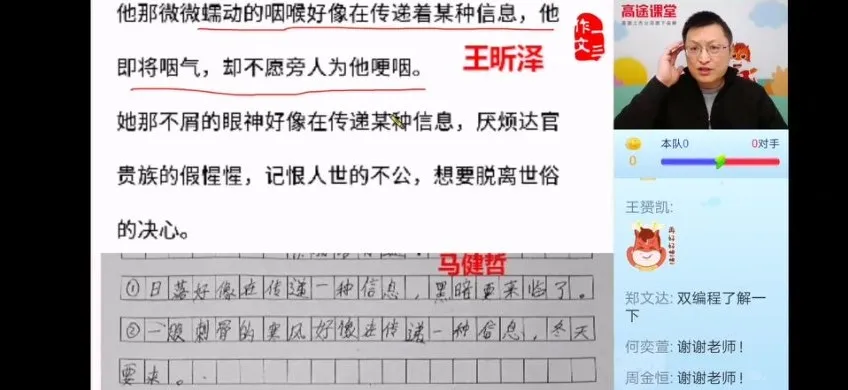 他那微微蠕动的咽喉好像在传递着某种信息，他
即将咽气，却不愿旁人为他哽咽。
王昕泽
作文
她那不屑的眼神好像在传递某种信息，厌烦达官
贵族的假惺惺，记恨人世的不公，想要脱离世俗
的决心。
马健哲
①日落好像在传递一种信息，黑暗要来临了。
②一股刺骨的寒风好像在传递一种信息，冬天
要来。
高途课堂
本队0
0对手
0
王赟凯：
郑文达：双编程了解一
下
何奕萱：谢谢老师！
周金恒：谢谢老师！